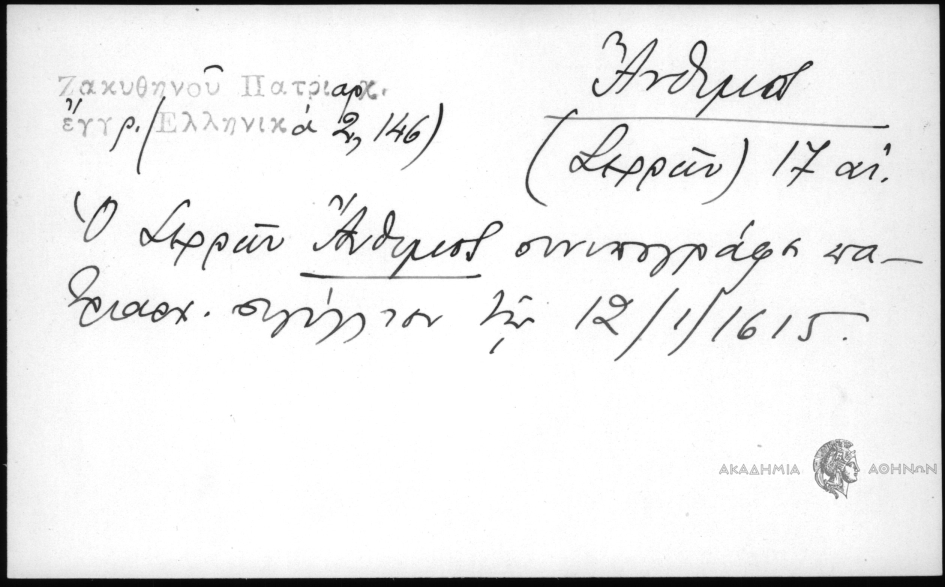 Ζακυθηνοῦ Πατριαρχ.
ἔγγρ. (Ἑλληνικά 2, 146)
Ἄνθιμος
(Σερρῶν) 17 αἰ.
Ὁ Σερρῶν Ἄνθιμος συνυπογράφει πα-
τριαρχ. σιγίλλιον τῇ 12/1/1615.
ΑΚΑΔΗΜΙΑ ΑΘΗΝΩΝ